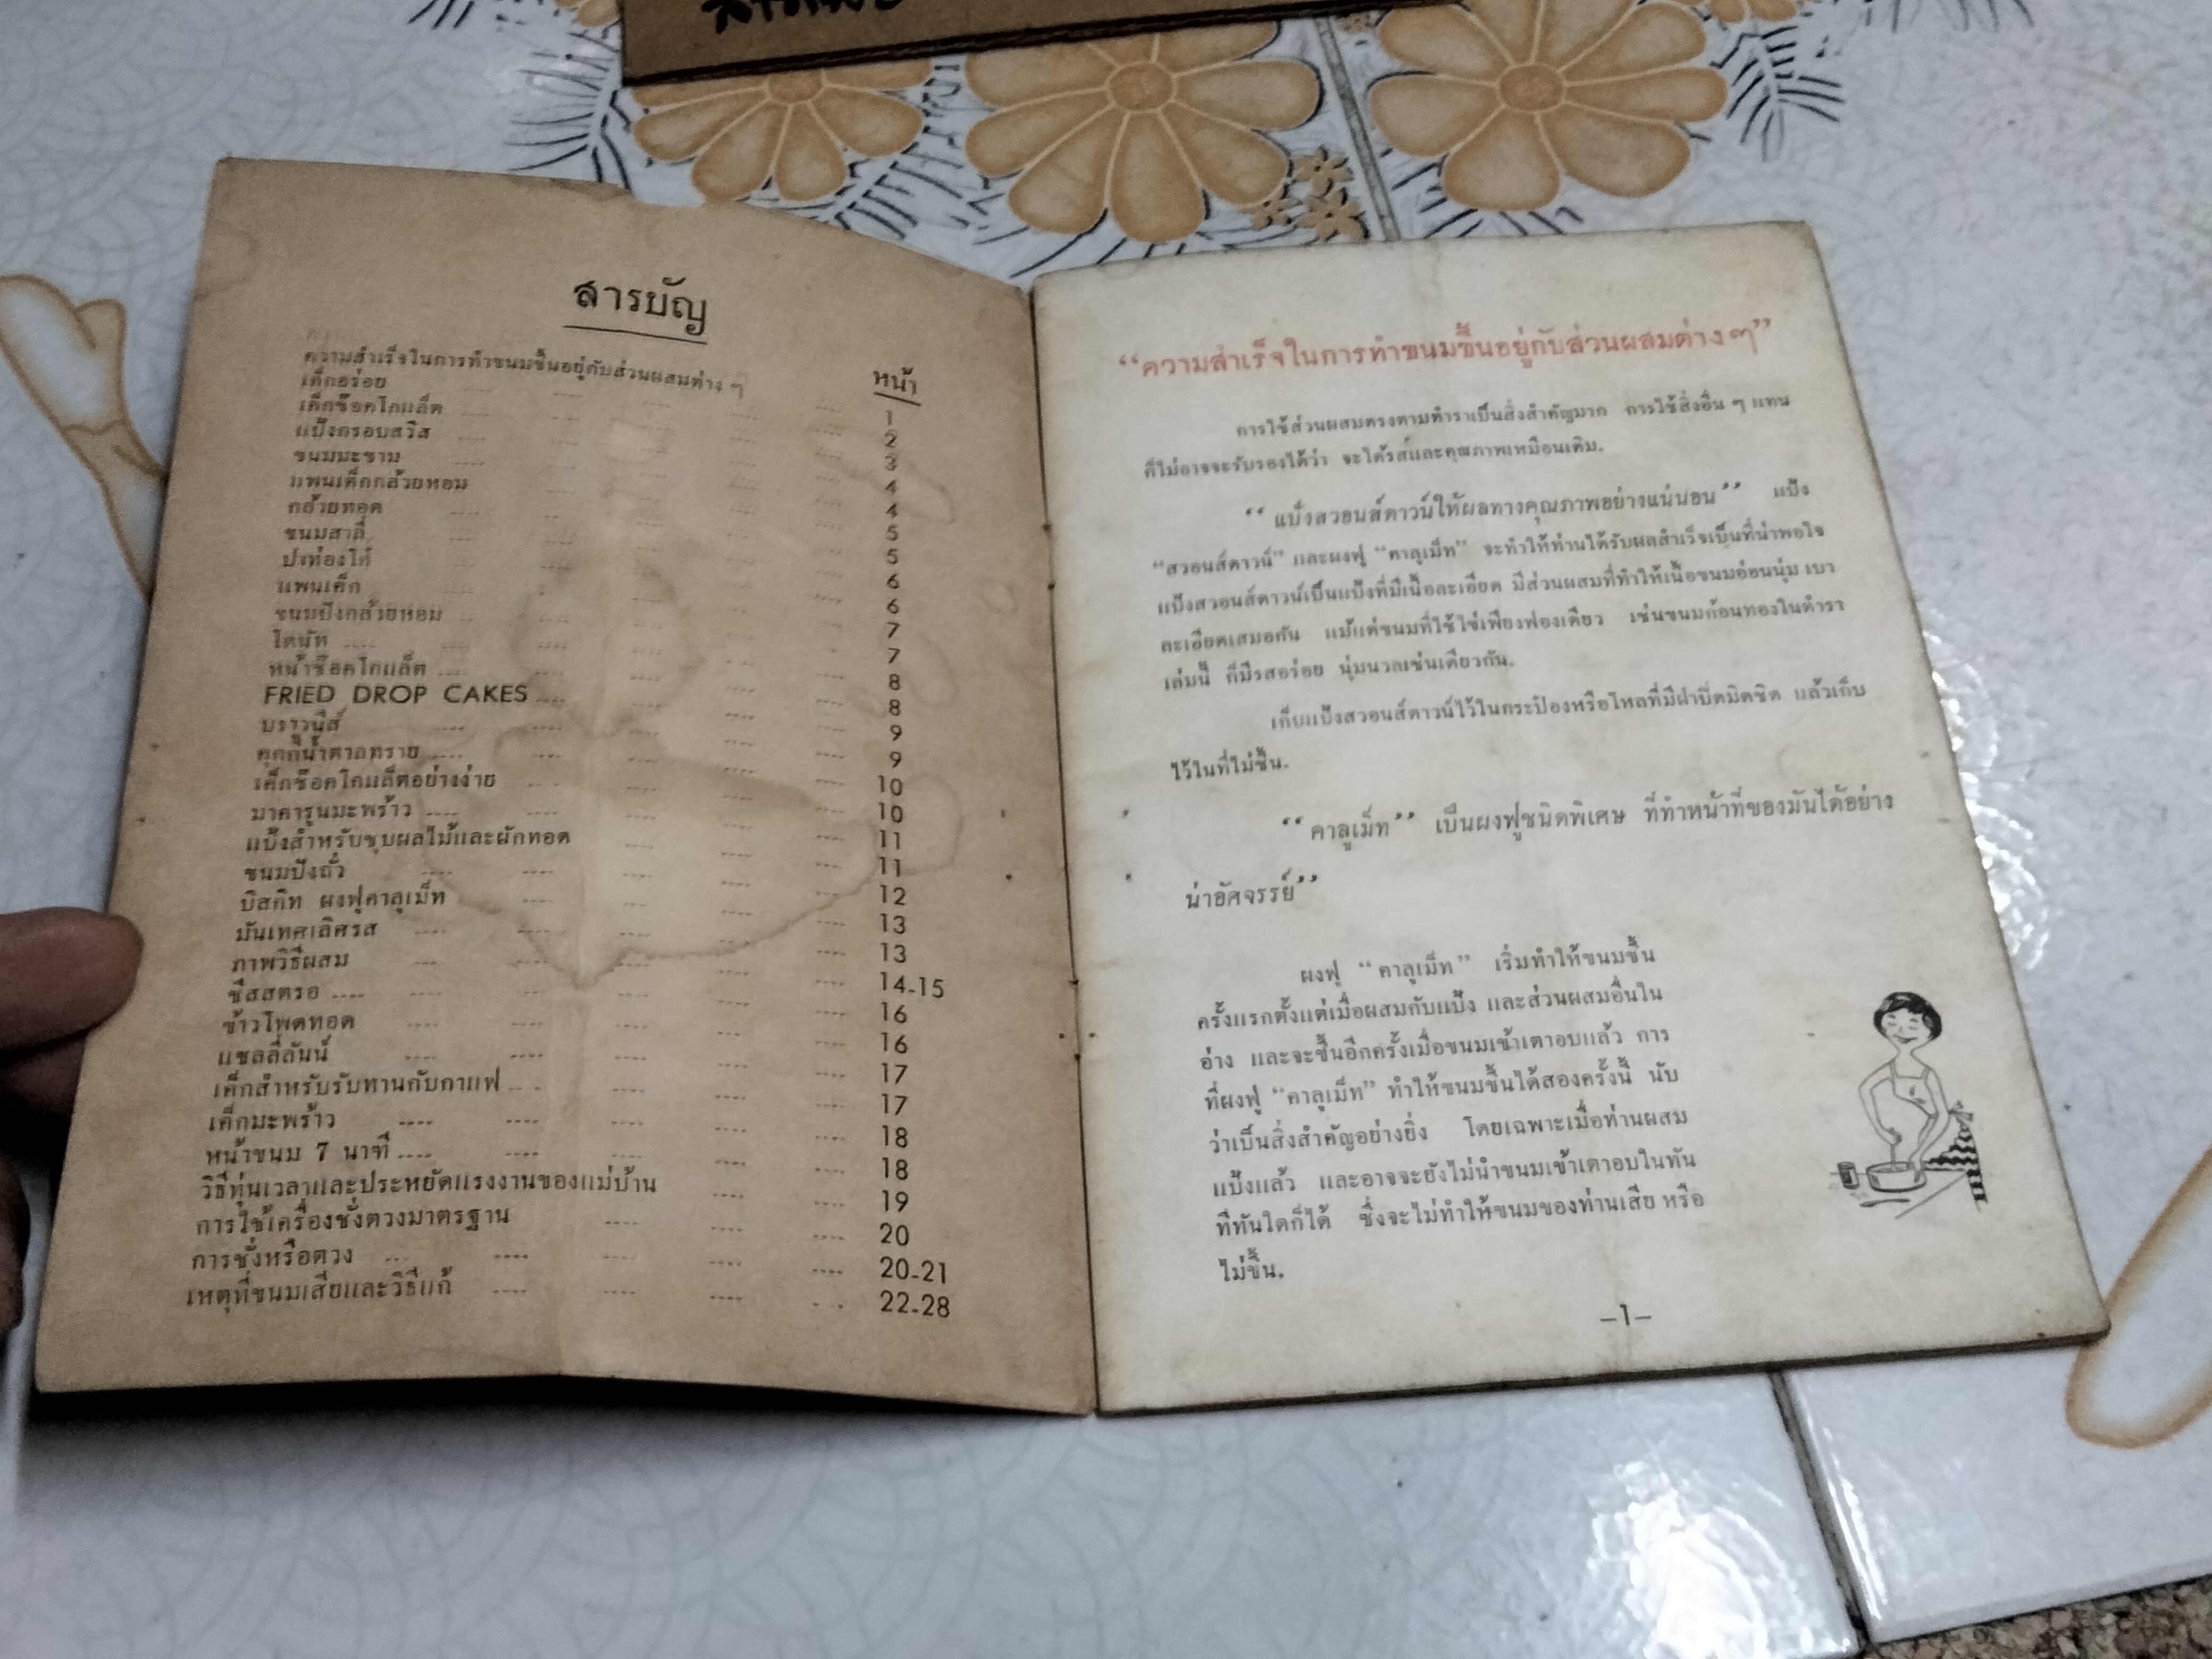 สารบัญ
หน้า
ความสำเร็จในการทำขนมขึ้นอยู่กับส่วนผสมต่าง ๆ .... 1
เค็กอร่อย .... .... .... .... 2
เค็กช๊อคโกแล็ต .... .... .... .... 3
แป้งกรอบสวิส .... .... .... .... 4
ขนมมะขาม .... .... .... .... 4
แพนเค็กกล้วยหอม .... .... .... .... 5
กล้วยทอด .... .... .... .... 5
ขนมสาลี่ .... .... .... .... 6
ปาท่องโก๋ .... .... .... .... 6
แพนเค็ก .... .... .... .... 7
ขนมปังกล้วยหอม .... .... .... .... 7
โดนัท .... .... .... .... 8
หน้าช๊อคโกแล็ต .... .... .... .... 8
FRIED DROP CAKES .... .... .... .... 9
บราวนีส์ .... .... .... .... 9
คุกกี้น้ำตาลทราย .... .... .... .... 10
เค็กช๊อคโกแล็ตอย่างง่าย .... .... .... .... 10
มาคารูนมะพร้าว .... .... .... .... 11
แป้งสำหรับชุบผลไม้และผักทอด .... .... .... 11
ขนมปังถั่ว .... .... .... .... 12
บิสกิท ผงฟูคาลูเม็ท .... .... .... .... 13
มันเทศเลิศรส .... .... .... .... 13
ภาพวิธีผสม .... .... .... .... 14-15
ชีสสตรอ .... .... .... .... 16
ข้าวโพดทอด .... .... .... .... 16
แชลลี่ลันน์ .... .... .... .... 17
เค็กสำหรับรับทานกับกาแฟ .... .... .... .... 17
เค็กมะพร้าว .... .... .... .... 18
หน้าขนม 7 นาที .... .... .... .... 18
วิธีทุ่นเวลาและประหยัดแรงงานของแม่บ้าน .... .... 19
การใช้เครื่องชั่งตวงมาตรฐาน .... .... .... 20
การชั่งหรือตวง .... .... .... .... 20-21
เหตุที่ขนมเสียและวิธีแก้ .... .... .... .... 22-28
“ความสำเร็จในการทำขนมขึ้นอยู่กับส่วนผสมต่าง ๆ”
การใช้ส่วนผสมตรงตามตำราเป็นสิ่งสำคัญมาก การใช้สิ่งอื่น ๆ แทน
ก็ไม่อาจจะรับรองได้ว่า จะได้รสและคุณภาพเหมือนเดิม.
“แป้งสวอนส์ดาวน์ให้ผลทางคุณภาพอย่างแน่นอน” แป้ง
“สวอนส์ดาวน์” และผงฟู “คาลูเม็ท” จะทำให้ท่านได้รับผลสำเร็จเป็นที่น่าพอใจ
แป้งสวอนส์ดาวน์เป็นแป้งที่มีเนื้อละเอียด มีส่วนผสมที่ทำให้เนื้อขนมอ่อนนุ่ม เบา
ละเอียดเสมอกัน แม้แต่ขนมที่ใช้ไข่เพียงฟองเดียว เช่นขนมก้อนทองในตำรา
เล่มนี้ ก็มีรสอร่อย นุ่มนวลเช่นเดียวกัน.
เก็บแป้งสวอนส์ดาวน์ไว้ในกระป๋องหรือโหลที่มีฝาปิดมิดชิด แล้วเก็บ
ไว้ในที่ไม่ชื้น.
“คาลูเม็ท” เป็นผงฟูชนิดพิเศษ ที่ทำหน้าที่ของมันได้อย่าง
น่าอัศจรรย์”
ผงฟู “คาลูเม็ท” เริ่มทำให้ขนมขึ้น
ครั้งแรกตั้งแต่เมื่อผสมกับแป้ง และส่วนผสมอื่นใน
อ่าง และจะขึ้นอีกครั้งเมื่อขนมเข้าเตาอบแล้ว การ
ที่ผงฟู “คาลูเม็ท” ทำให้ขนมขึ้นได้สองครั้งนี้ นับ
ว่าเป็นสิ่งสำคัญอย่างยิ่ง โดยเฉพาะเมื่อท่านผสม
แป้งแล้ว และอาจจะยังไม่นำขนมเข้าเตาอบในทัน
ทีทันใดก็ได้ ซึ่งจะไม่ทำให้ขนมของท่านเสีย หรือ
ไม่ขึ้น.
–1–